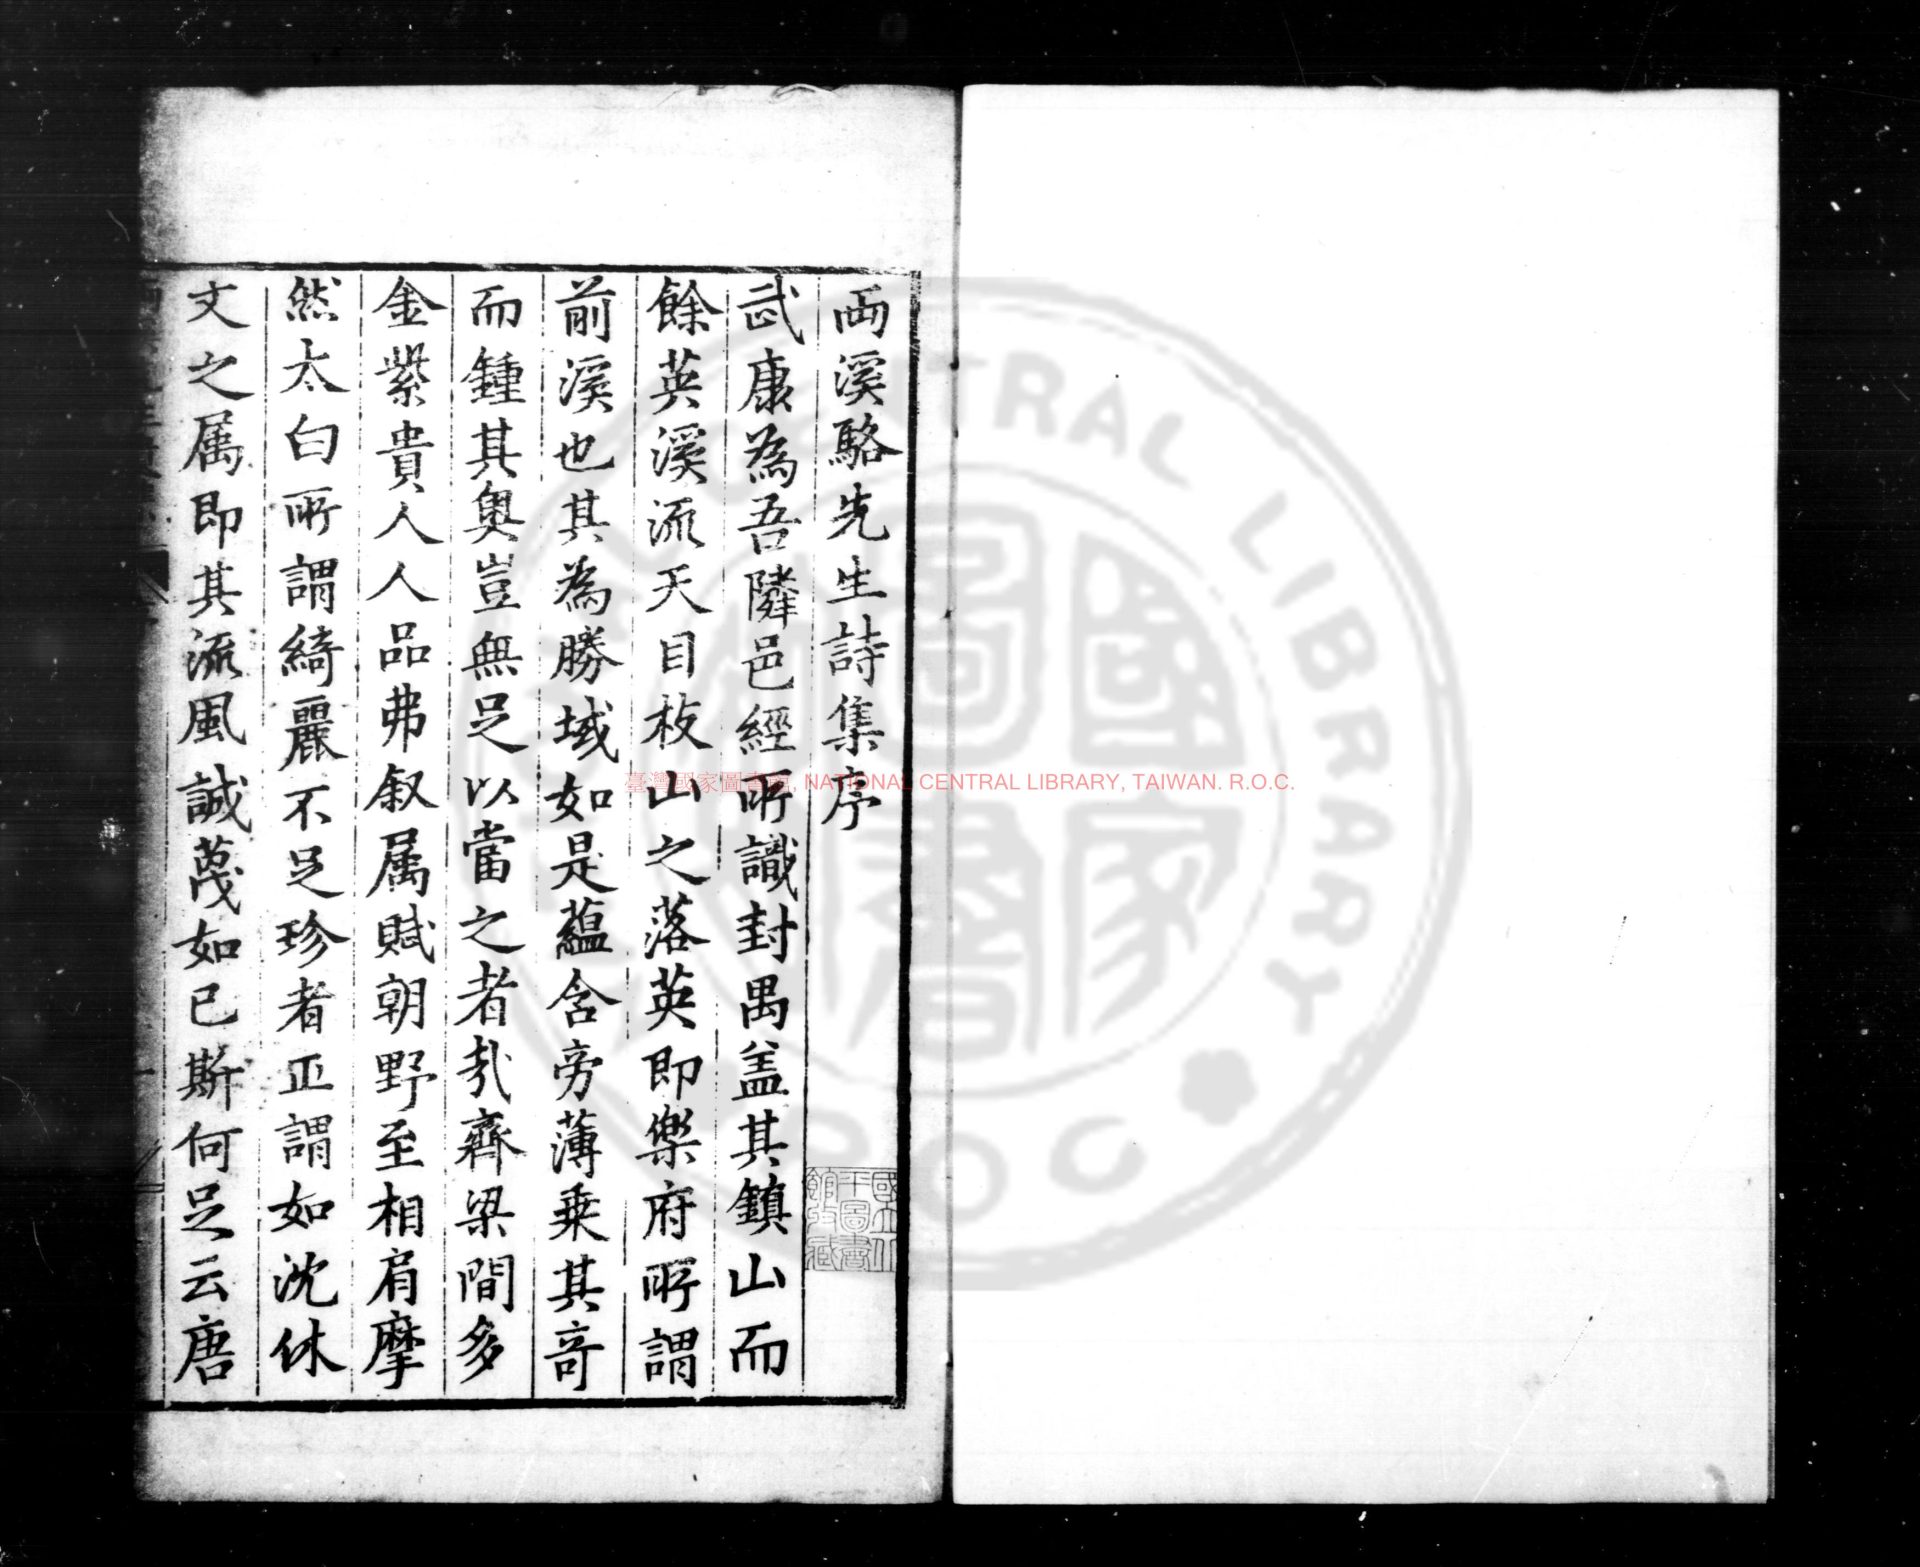 兩溪駱先生詩集序
武康為吾隣邑經所識封禺盖其鎮山而
餘英溪流天目枝山之落英即樂府所謂
前溪也其為勝域如是蘊含旁薄乗其竒
而鍾其奥豈無足以當之者㢤齊梁間多
金紫貴人人品弗叙属賦朝野至相肩摩
然太白所謂綺麗不足珍者正謂如沈休
文之属即其流風誠蔑如已斯何足云唐
國立北
平圖書
館收藏
臺灣國家圖書館, NATIONAL CENTRAL LIBRARY, TAIWAN. R.O.C.
國家圖書
CENTRAL LIBRARY
ROC